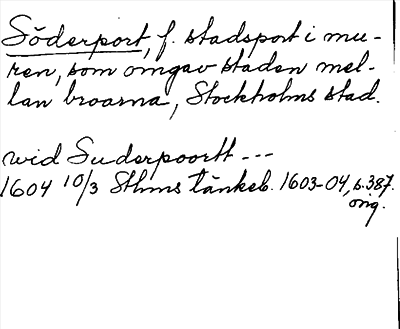 Söderport, f. stadsport i mu-
ren, som omgav staden mel-
lan broarna, Stockholms stad.
wid Suderpoortt ---
1604 10/3 Sthms tänkeb. 1603-04, s. 387.
orig.